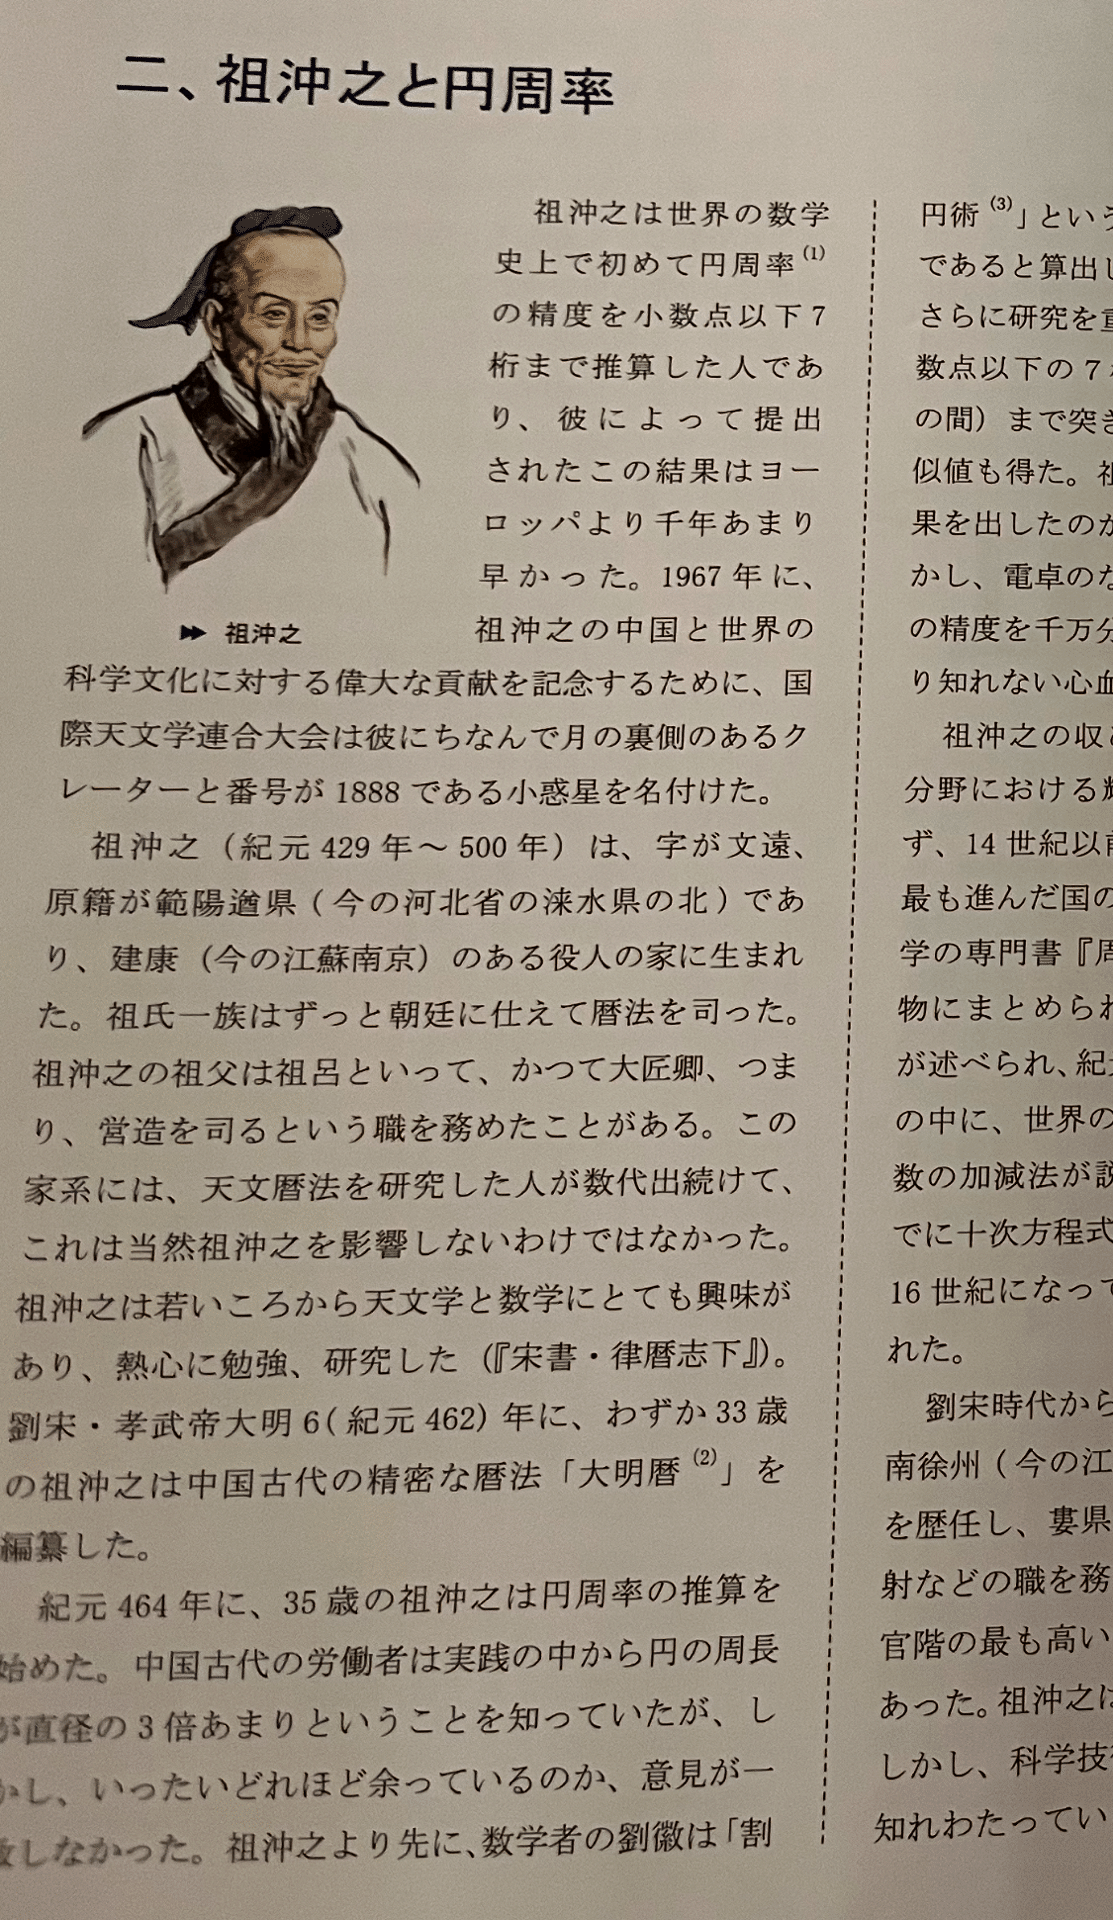 二、祖沖之と円周率
祖沖之は世界の数学
史上で初めて円周率(1)
の精度を小数点以下7
桁まで推算した人であ
り、彼によって提出
されたこの結果はヨー
ロッパより千年あまり
早かった。1967年に、
祖沖之の中国と世界の
▶▶ 祖沖之
科学文化に対する偉大な貢献を記念するために、国
際天文学連合大会は彼にちなんで月の裏側のあるク
レーターと番号が1888である小惑星を名付けた。
祖沖之（紀元429年～500年）は、字が文遠、
原籍が範陽遒県(今の河北省の淶水県の北)であ
り、建康（今の江蘇南京）のある役人の家に生まれ
た。祖氏一族はずっと朝廷に仕えて暦法を司った。
祖沖之の祖父は祖呂といって、かつて大匠卿、つま
り、営造を司るという職を務めたことがある。この
家系には、天文暦法を研究した人が数代出続けて、
これは当然祖沖之を影響しないわけではなかった。
祖沖之は若いころから天文学と数学にとても興味が
あり、熱心に勉強、研究した（『宋書・律暦志下』）。
劉宋・孝武帝大明6(紀元462)年に、わずか33歳
の祖沖之は中国古代の精密な暦法「大明暦(2)」を
編纂した。
紀元464年に、35歳の祖沖之は円周率の推算を
始めた。中国古代の労働者は実践の中から円の周長
が直径の3倍あまりということを知っていたが、し
かし、いったいどれほど余っているのか、意見が一
致しなかった。祖沖之より先に、数学者の劉徽は「割
円術(3)」という
であると算出し
さらに研究を重
数点以下の7
の間）まで突き
似値も得た。祖
果を出したのか
かし、電卓のな
の精度を千万分
り知れない心血
祖沖之の収
分野における輝
ず、14世紀以前
最も進んだ国の
学の専門書『周
物にまとめられ
が述べられ、紀元
の中に、世界の
数の加減法が説
でに十次方程式
16世紀になって
れた。
劉宋時代から
南徐州(今の江
を歴任し、婁県
射などの職を務
官階の最も高い
あった。祖沖之は
しかし、科学技術
知れわたってい